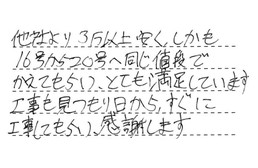 他社より3万以上安く、しかも
16号から20号へ同じ値段で
かえてもらい、とても満足しています
工事を見つもり日から、すぐに
工事してもらい、感謝します